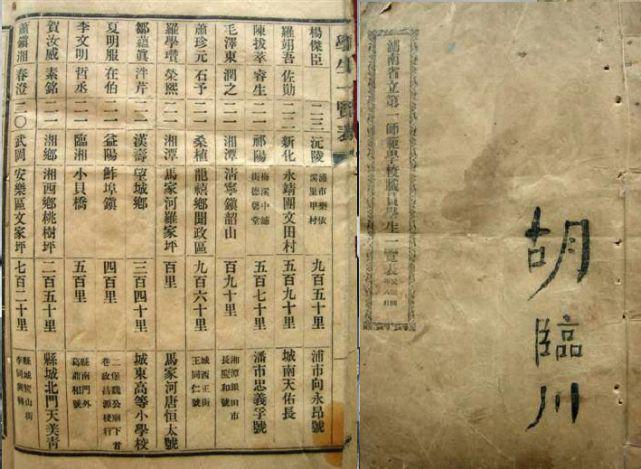 湖南省立第一師範學校職員學生一覽表
胡臨川
學生一覽表
楊傑臣 二三 沅陵 浦市樂依溪里甲村 九百五十里 浦市向永昂號
羅翊吾 佐勛 二一 新化 永靖團文田村 五百九十里 城南天佑長
陳拔萃 睿生 二一 祁陽 梅溪中鋪街德馨堂 五百七十里 潘市忠義孚號
毛澤東 潤之 二一 湘潭 清寧鎮韶山 百九十里 湘潭銀田市長慶和號
蕭珍元 石予 二一 桑植 龍禧鄉聞政區 九百六十里 城西正街王同仁號
羅學瓚 榮熙 二一 湘潭 馬家河羅家坪 百里 馬家河唐恒太號
鄒蘊眞 泮芹 二一 漢壽 望城鄉 三百四十里 城東高等小學校
夏明服 在伯 二一 益陽 鮓埠鎮 四百里 二堡魏公廟下首
李文明 哲丞 二一 臨湘 小貝橋 五百里 縣南門外葛鼎和號
賀汝威 素銘 二一 湘鄉 湘西鄉桃樹坪 二百五十里 縣城北門天美靑
蕭鎭湘 春澄 二〇 武岡 安樂區文家坪 七百二十里